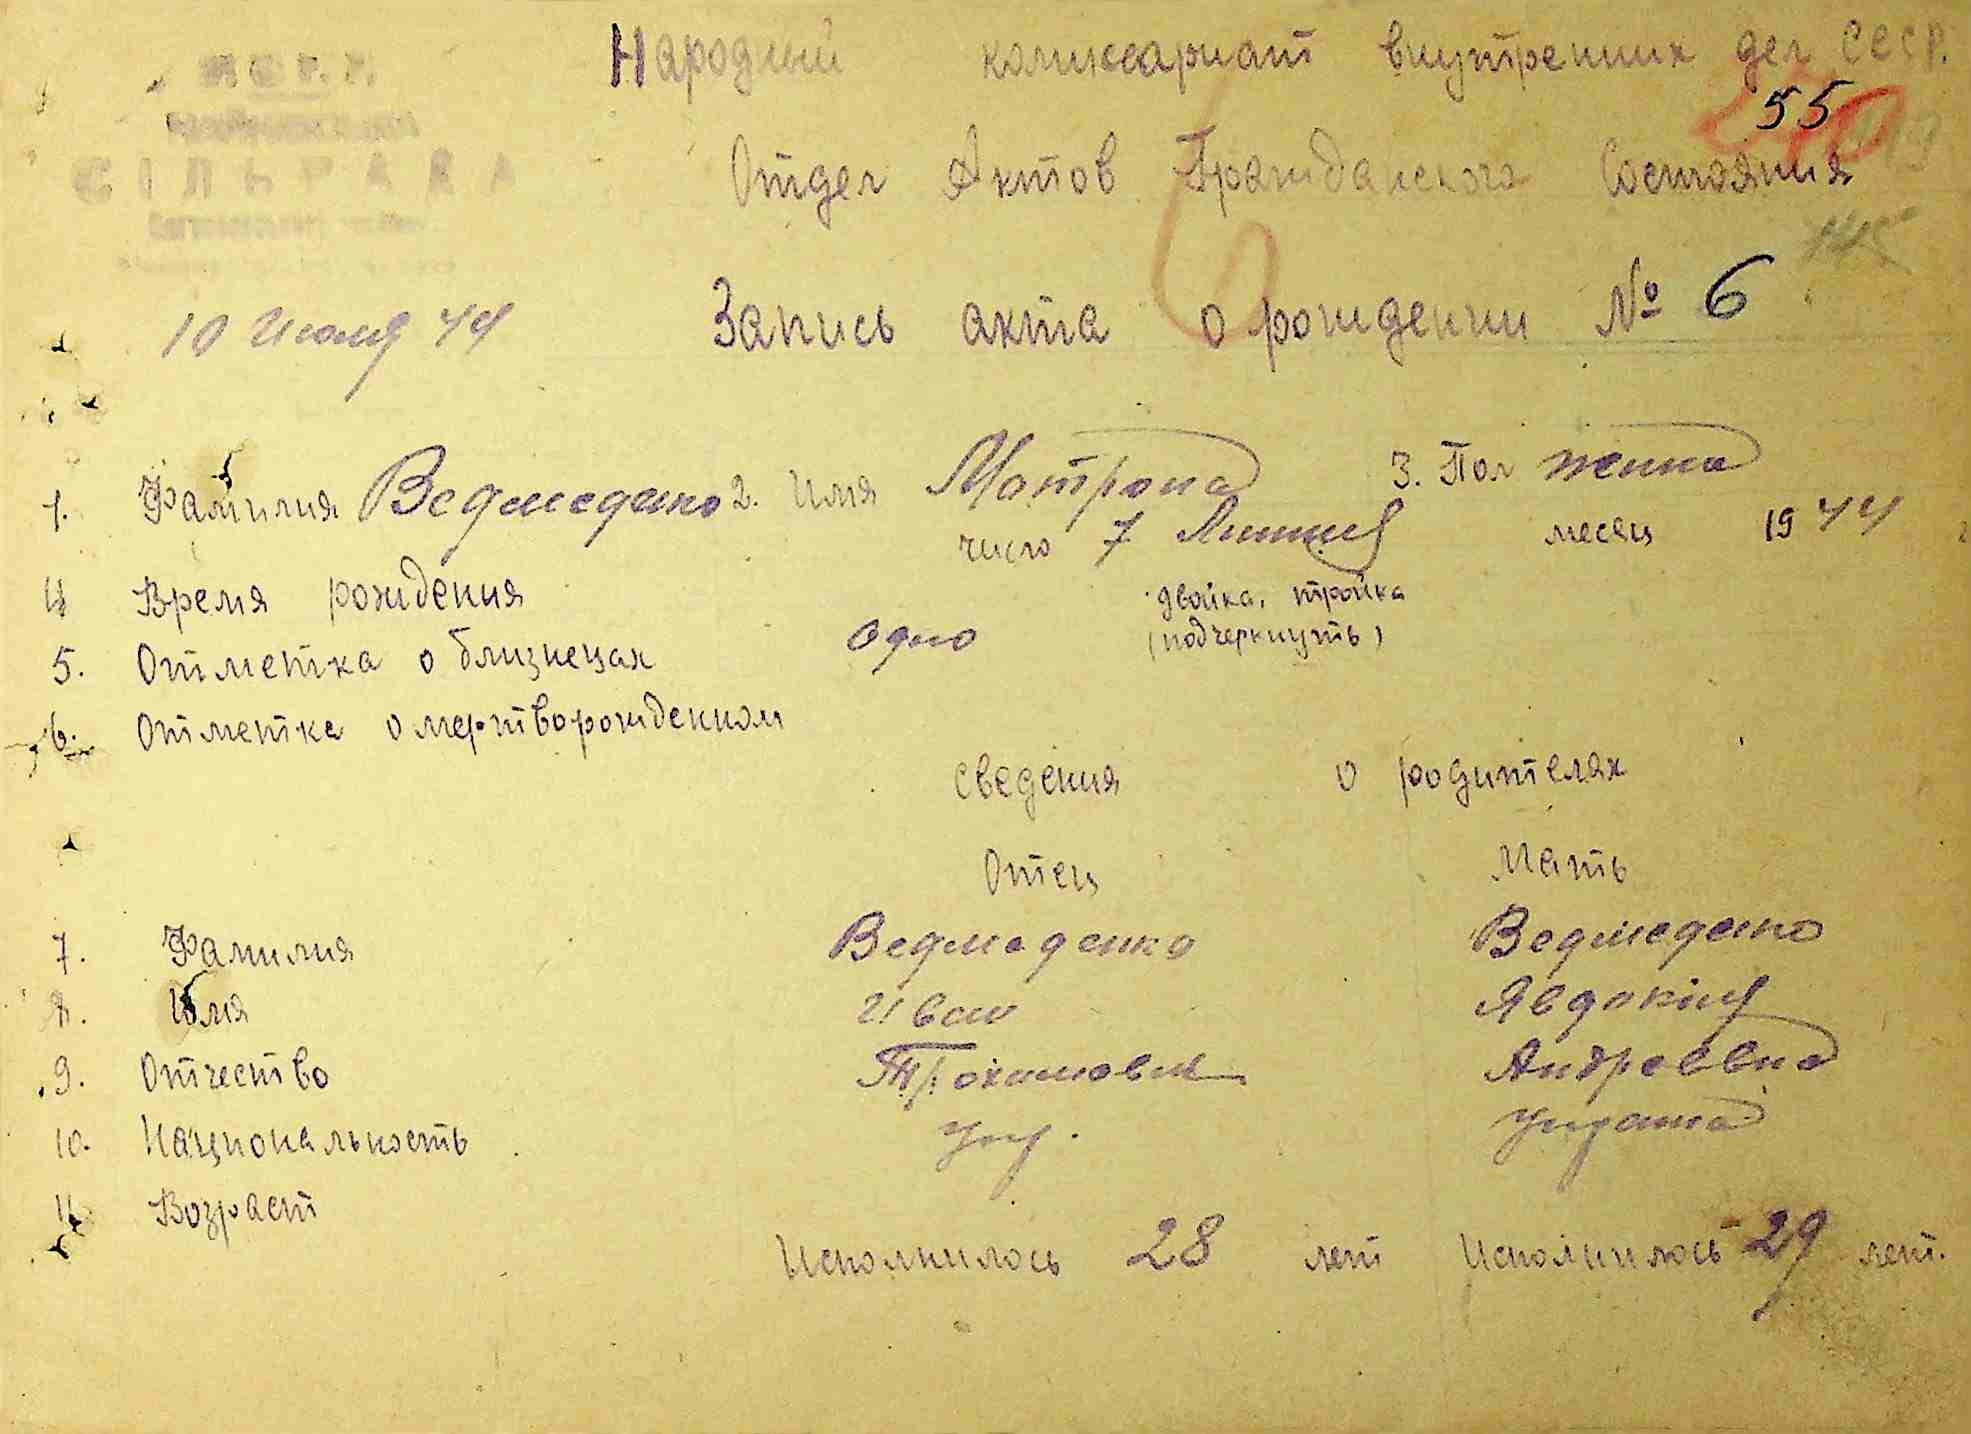 Народный комиссариат внутренних дел СССР.
55
Отдел Актов Гражданского Состояния
У.С.Р.Р.
СІЛЬРАДА
145
10 Июля 44
Запись акта о рождении № 6
1. Фамилия Ведмеденко 2. Имя Мотрона 3. Пол женна
число 7 месяц 1944
4 Время рождения
двойка, тройка
5. Отметка о близнецах одно (подчеркнуть)
6. Отметка о мертворожденном
Сведения о родителях
Отец Мать
7. Фамилия Ведмеденко Ведмеденко
8. Имя Иван Явдокия
9. Отчество Андреевна
10. Национальность укр. украинка
11 Возраст
Исполнилось 28 лет Исполнилось 29 лет.